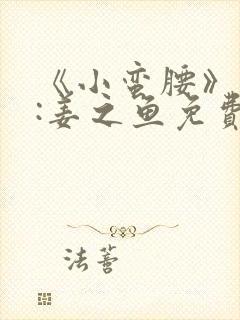 《小蛮腰》
:姜之鱼免費
法蒼